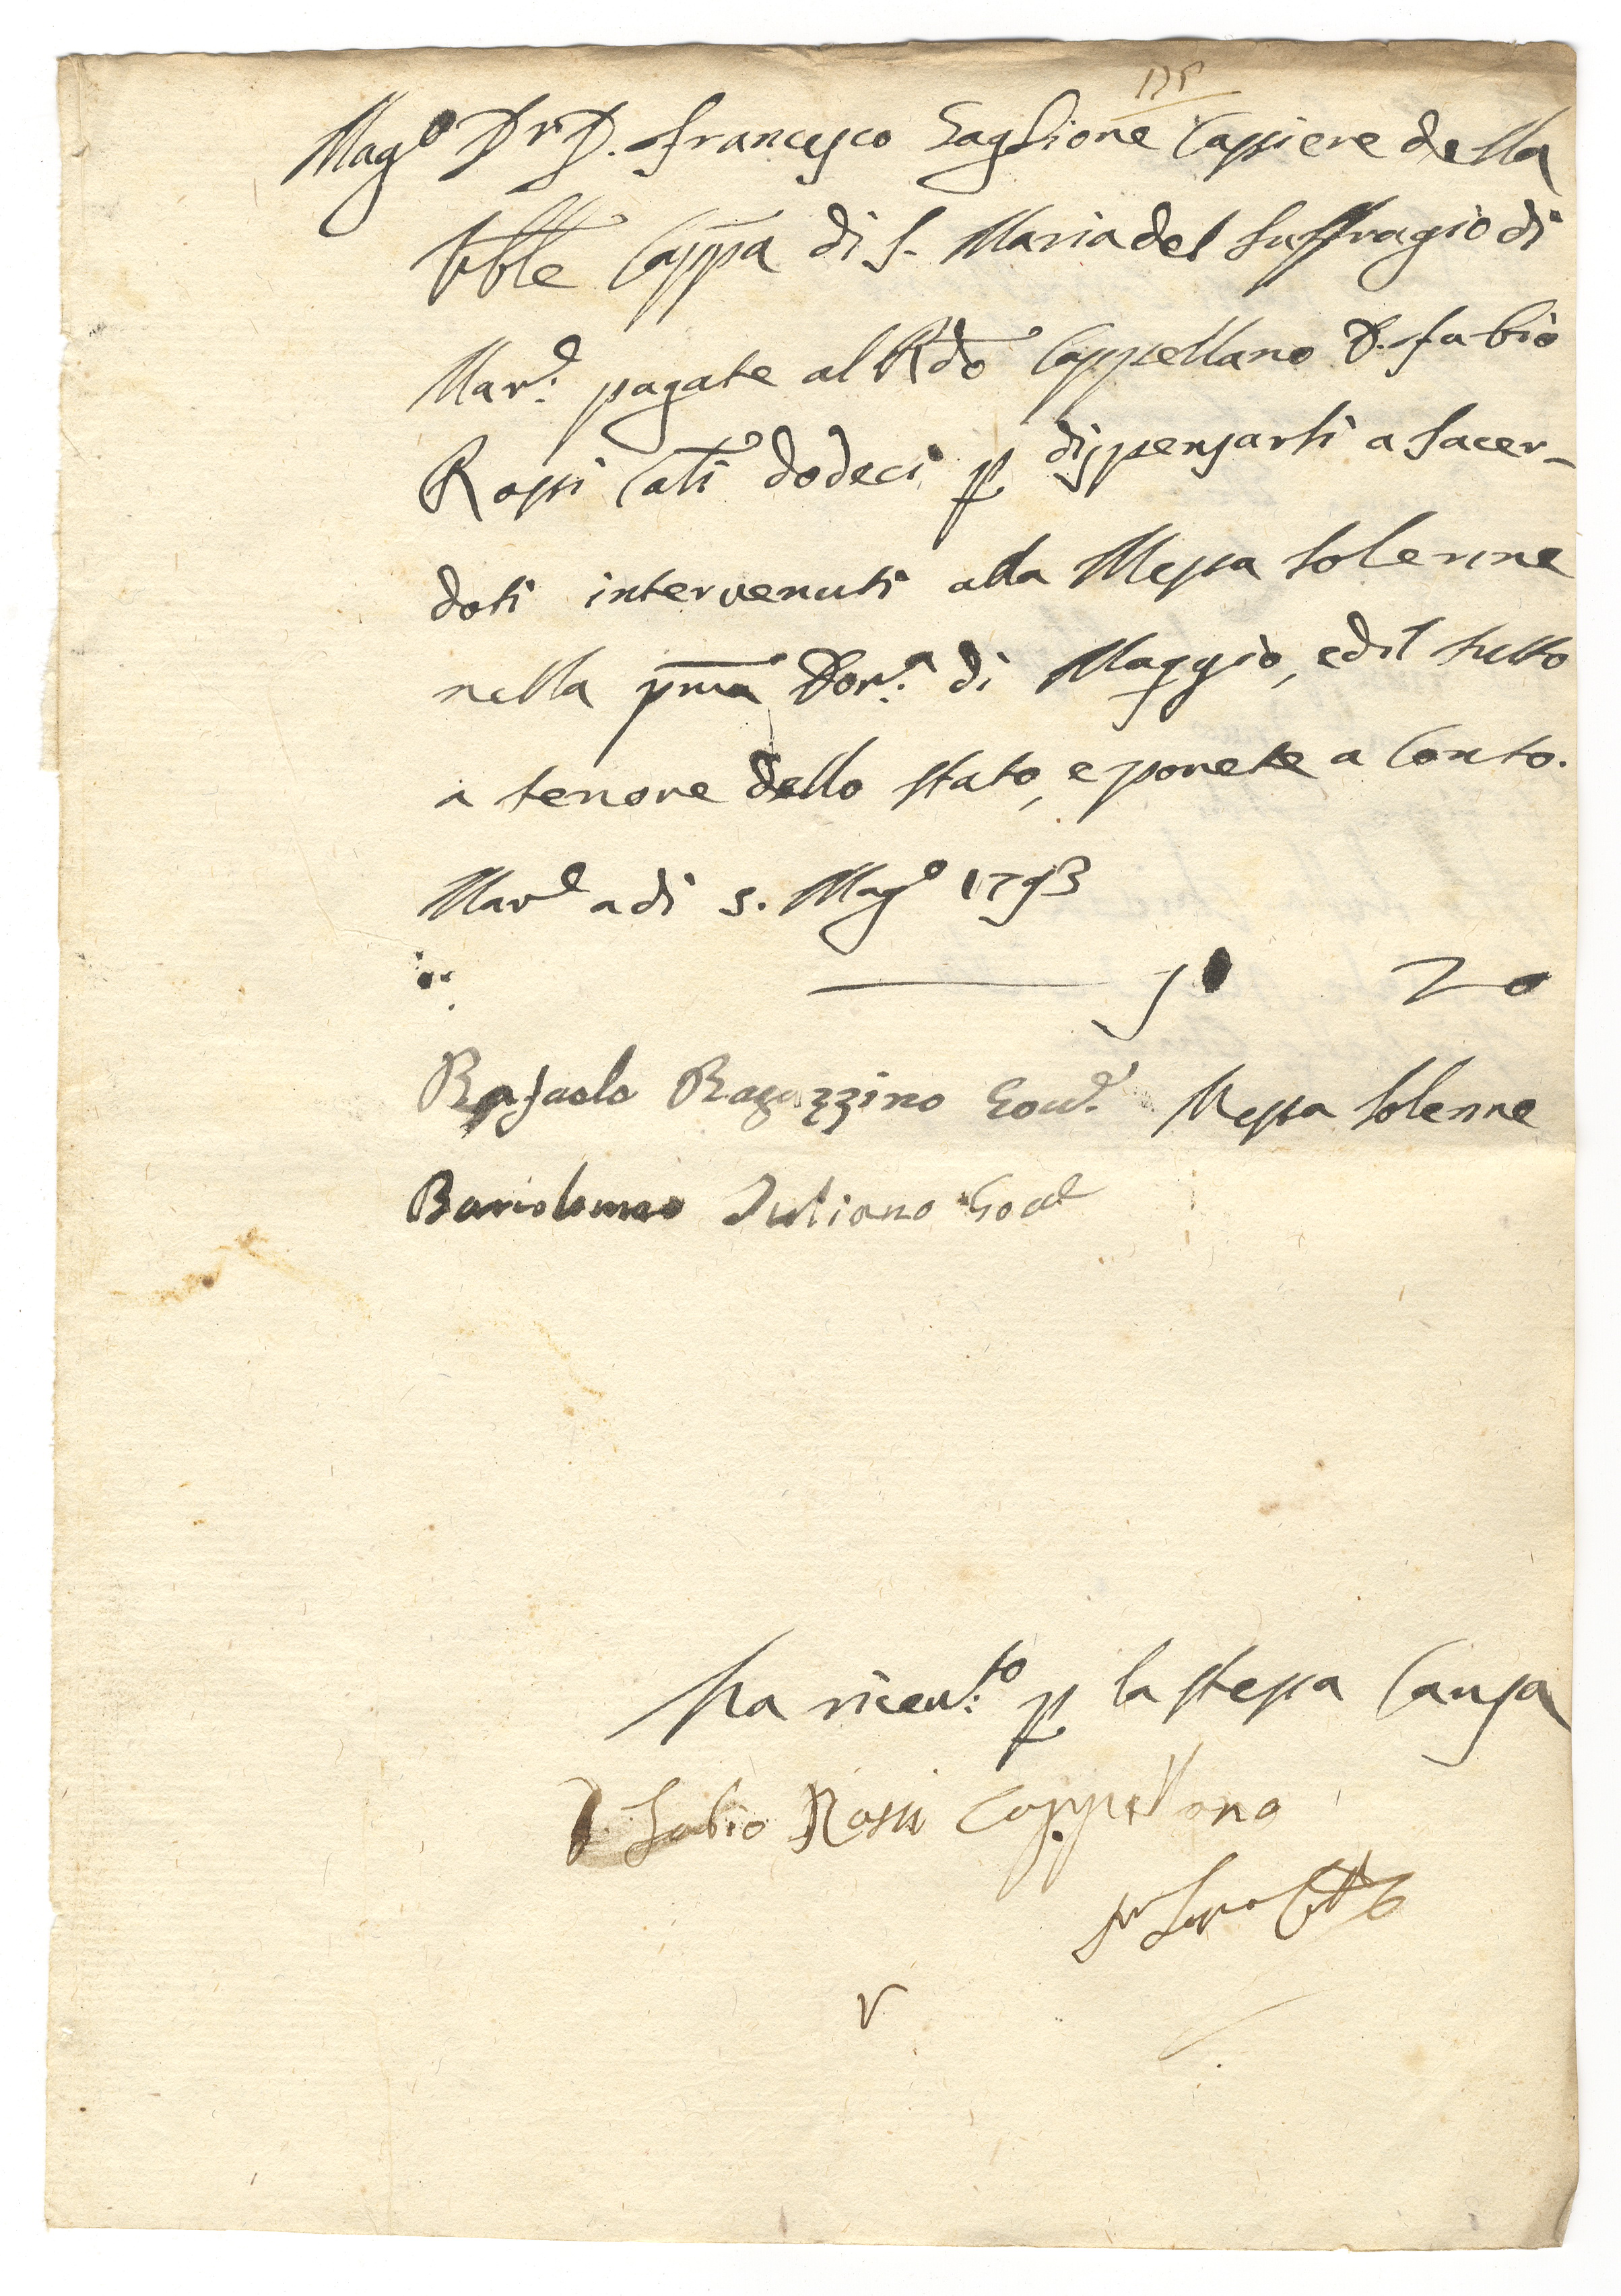 175
Mag.o Dr D. Francesco Gaglione Cassiere della
Vble Cappa di S. Maria del Suffragio di
Mar.e pagate al Rdo Cappellano D. Fabio
Rossi Cati dodeci p dispensarli a Sacer-
doti intervenuti alla Messa Solenne
nella pma Dom.a di Maggio, ed il tutto
a tenore dello stato, e ponete a Conto.
Mar.e a di 5. Mag.o 1793
20
Rafaele Ragozzino Gov.e Messa Solenne
Bartolomeo Iuliano Gov.e
ha riceu.to p la stessa Causa
D Fabio Rossi Cappellano
V